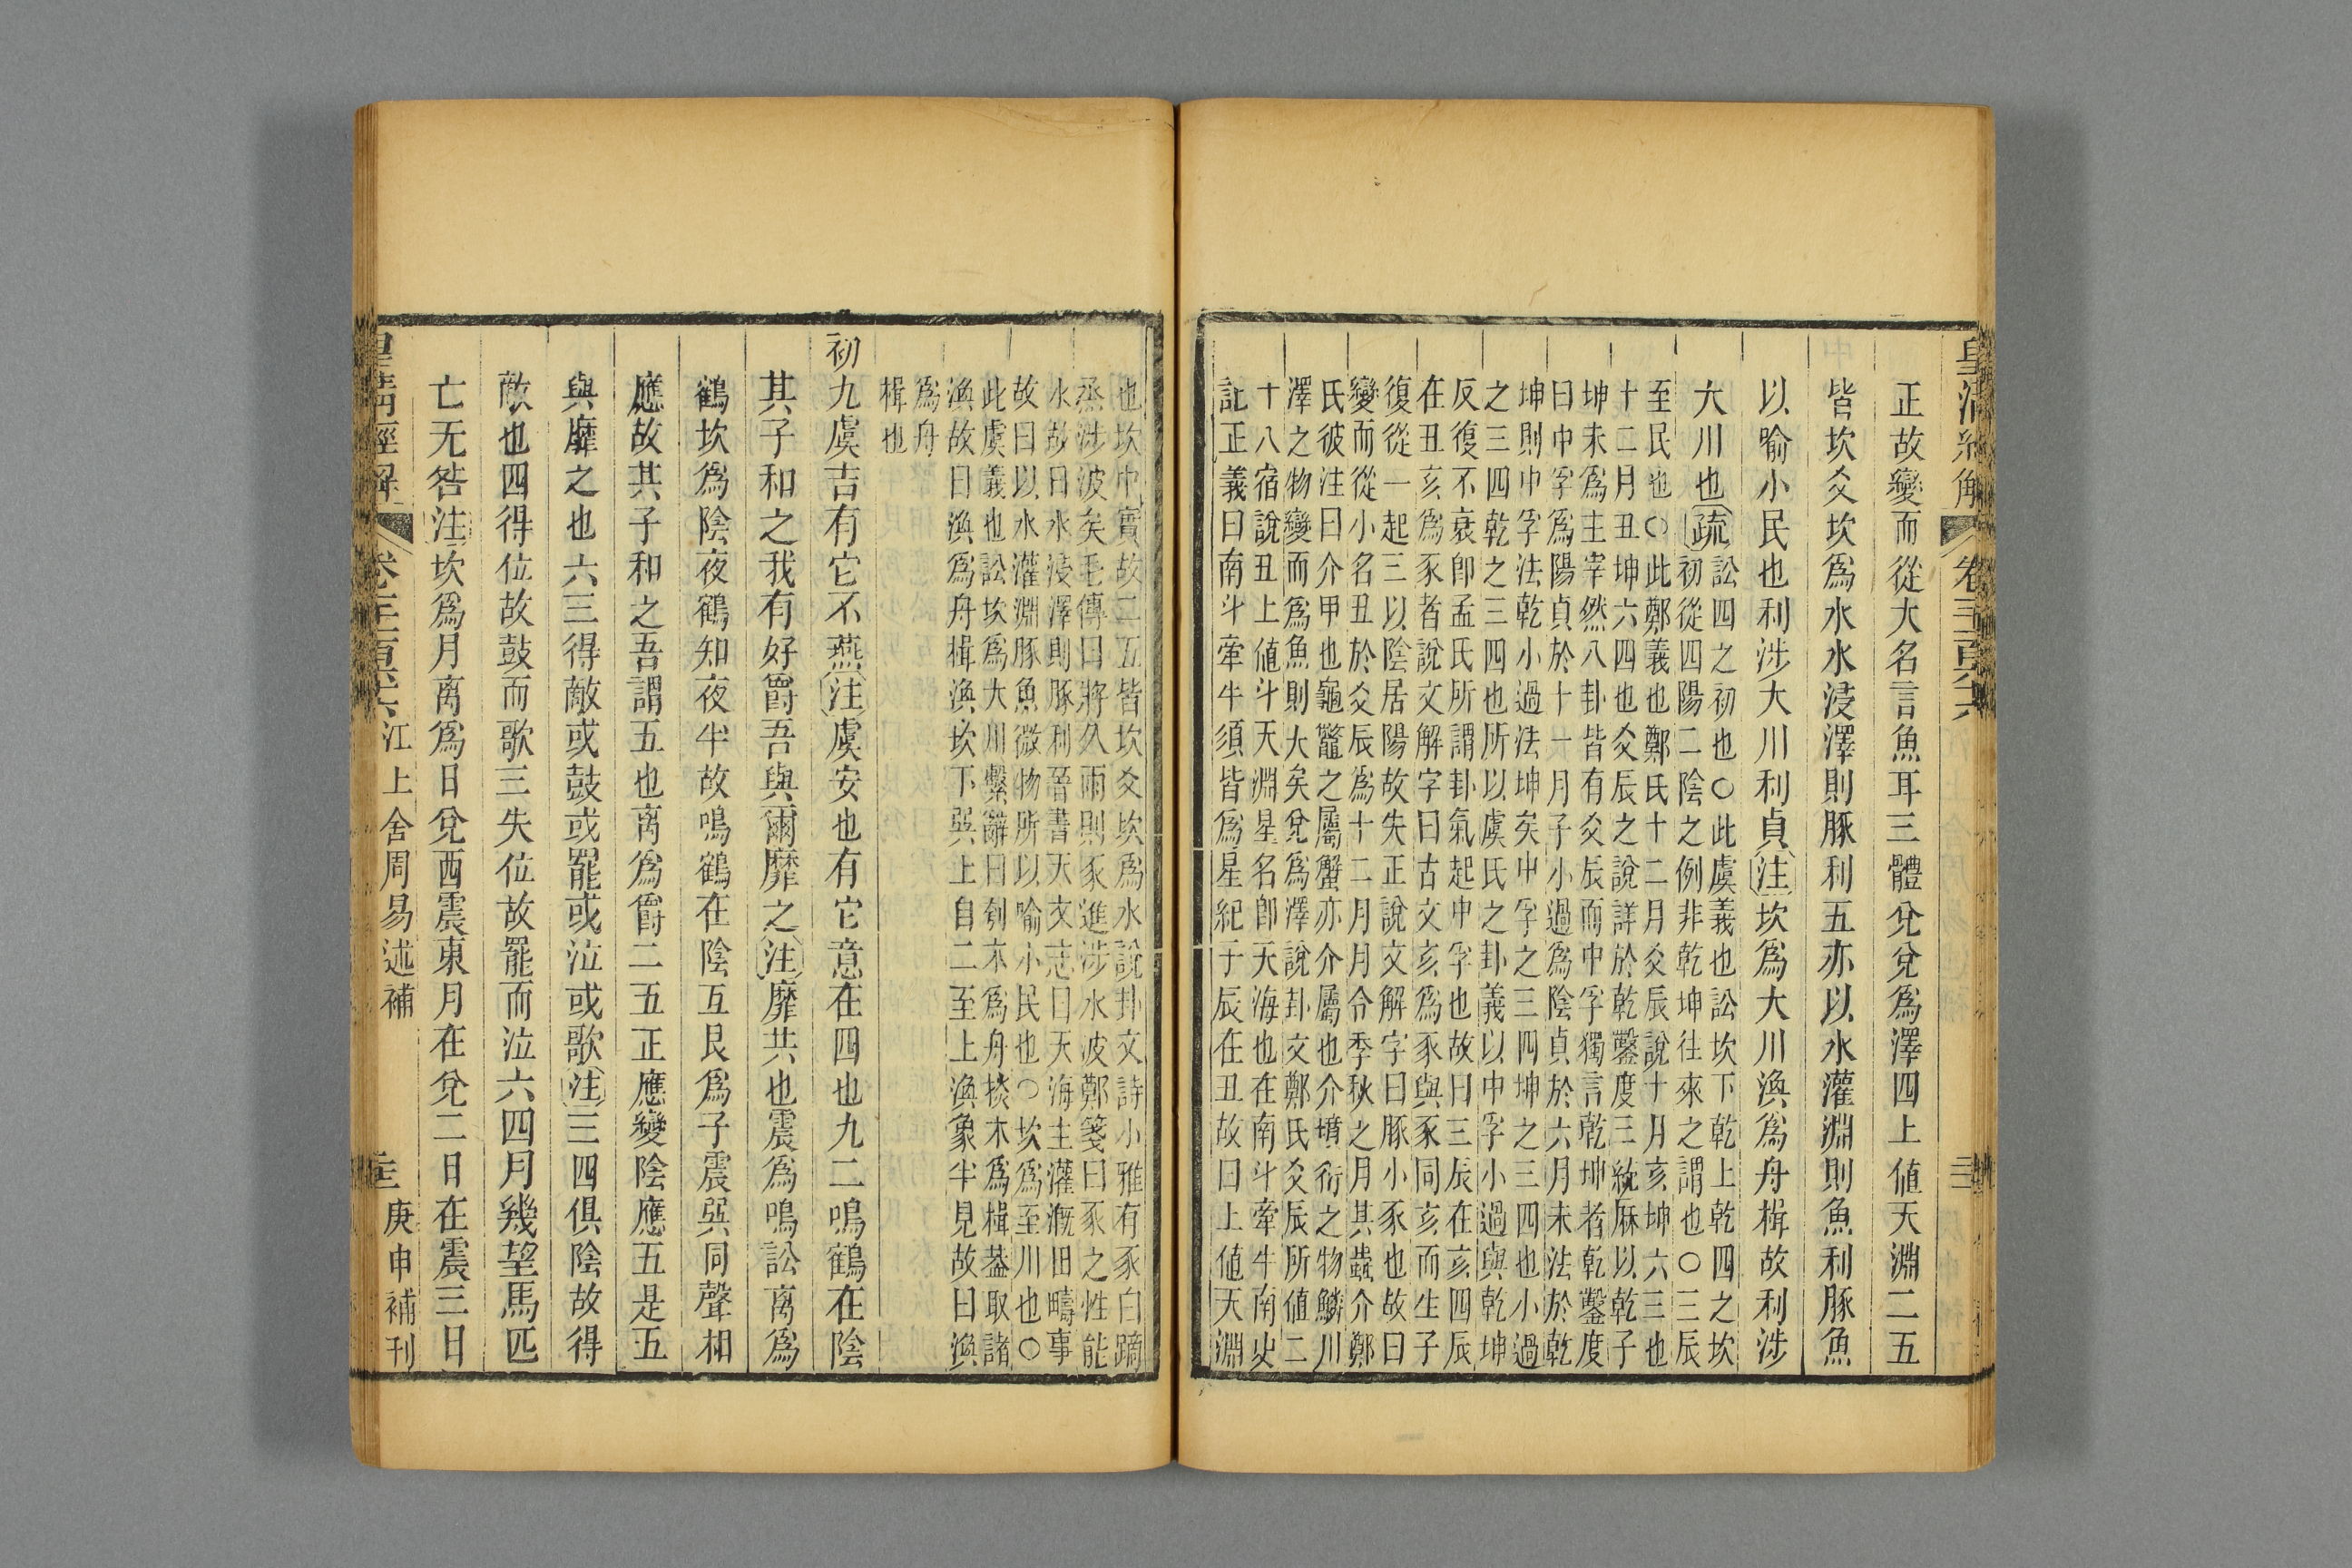 皇清經解 卷三百六十六
正故變而從大名言魚耳三體兌兌爲澤四上値天淵二五
皆坎爻坎爲水水浸澤則豚利五亦以水灌淵則魚利豚魚
以喻小民也利涉大川利貞注坎爲大川渙爲舟楫故利涉
大川也疏訟四之初也○此虞義也訟坎下乾上乾四之坎
初從四陽二陰之例非乾坤往來之謂也○三辰
至民也○此鄭義也鄭氏十二月爻辰說十月亥坤六三也
十二月丑坤六四也爻辰之說詳於乾鑿度三統厤以乾子
坤未爲主宰然八卦皆有爻辰而中孚獨言乾坤者乾鑿度
曰中孚爲陽貞於十一月子小過爲陰貞於六月未法於乾
坤則中孚法乾小過法坤矣中孚之三四坤之三四也小過
之三四乾之三四也所以虞氏之卦義以中孚小過與乾坤
反復不衰卽孟氏所謂卦氣起中孚也故曰三辰在亥四辰
在丑亥爲豕者說文解字曰古文亥爲豕與豕同亥而生子
復從一起三以陰居陽故失正說文解字曰豚小豕也故曰
變而從小名丑於爻辰爲十二月月令季秋之月其蟲介鄭
氏彼注曰介甲也龜鼈之屬蟹亦介屬也介墳衍之物鱗川
澤之物變而爲魚則大矣兌爲澤說卦文鄭氏爻辰所値二
十八宿說丑上値斗天淵星名卽天海也在南斗牽牛南史
記正義曰南斗牽牛須皆爲星紀于辰在丑故曰上値天淵
也坎中實故二五皆坎爻坎爲水說卦文詩小雅有豕白蹢
烝涉波矣毛傳曰將久雨則豕進涉水波鄭箋曰豕之性能
水故曰水浸澤則豚利晉書天文志曰天海主灌溉田疇事
故曰以水灌淵豚魚微物所以喻小民也○坎爲至川也○
此虞義也訟坎爲大川繫辭曰刳木爲舟掞木爲楫葢取諸
渙故曰渙爲舟楫渙坎下巽上自二至上渙象半見故曰渙
爲舟
楫也
初九虞吉有它不燕注虞安也有它意在四也九二鳴鶴在陰
其子和之我有好爵吾與爾靡之注靡共也震爲鳴訟离爲
鶴坎爲陰夜鶴知夜半故鳴鶴在陰互艮爲子震巽同聲相
應故其子和之吾謂五也离爲爵二五正應變陰應五是五
與靡之也六三得敵或鼓或罷或泣或歌注三四俱陰故得
敵也四得位故鼓而歌三失位故罷而泣六四月幾望馬匹
亡无咎注坎爲月离爲日兌西震東月在兌二日在震三日
皇清經解 卷三百六十六 江上舍周易述補 庚申補刊